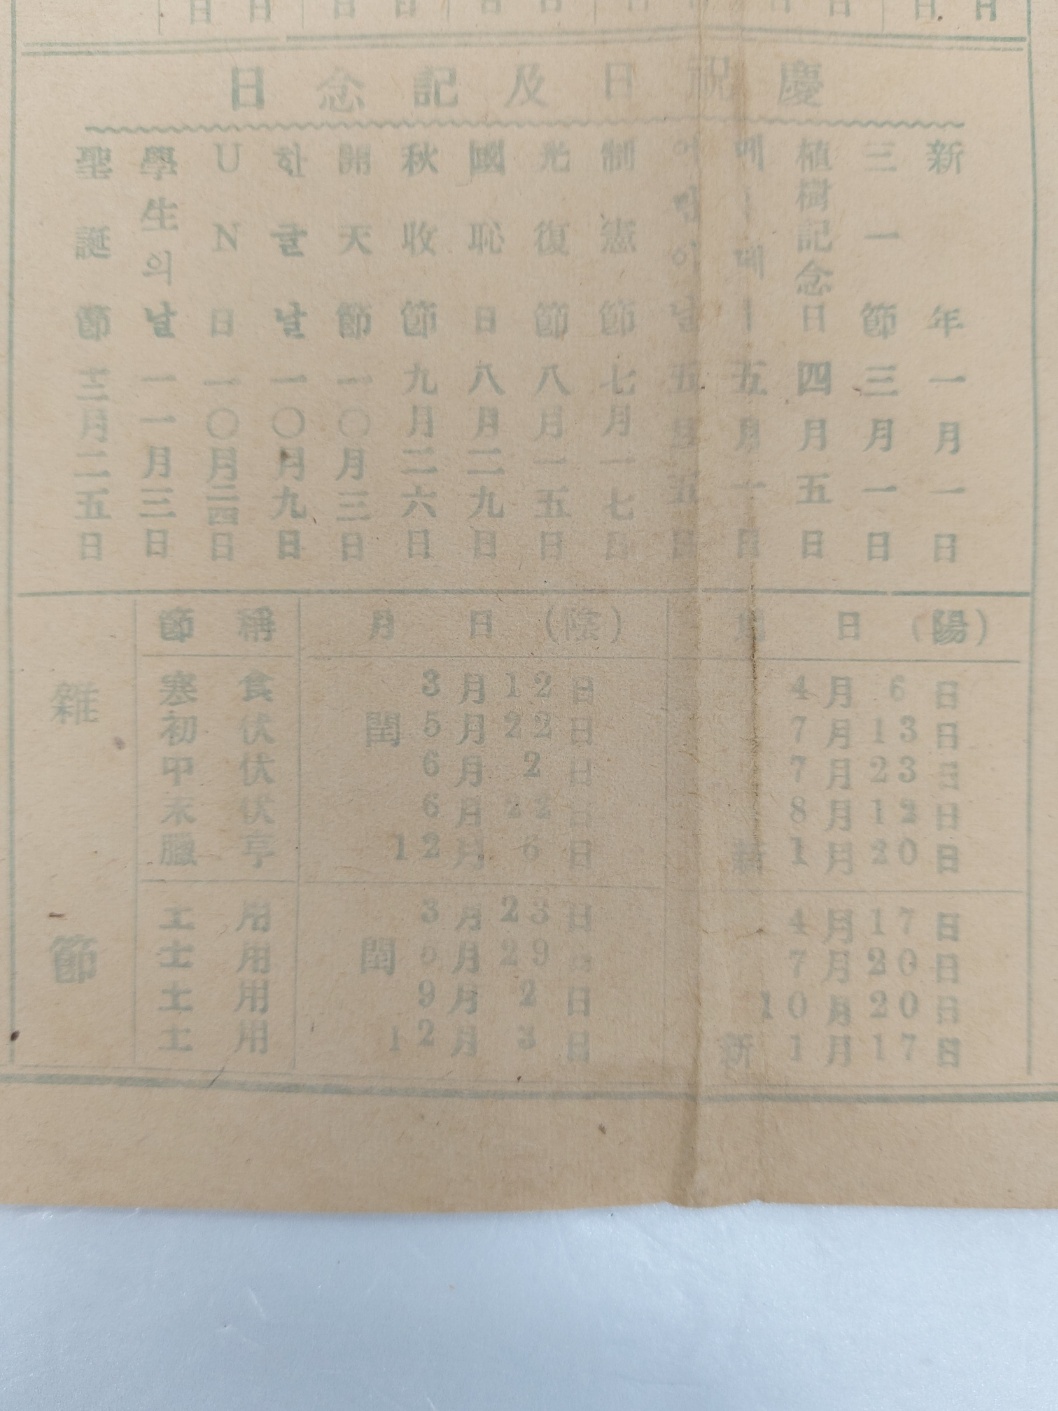 慶祝日及記念日
新年 一月一日
三一節 三月一日
植樹記念日 四月五日
메ー데ー 五月一日
어린이날 五月五日
制憲節 七月一七日
光復節 八月一五日
國恥日 八月二九日
秋收節 九月二六日
開天節 一〇月三日
한글날 一〇月九日
UN日 一〇月二四日
學生의날 一一月三日
聖誕節 三月二五日
雜節
節稱 月日(陰) 日(陽)
寒食 3月12日 4月6日
初伏 閏5月22日 7月13日
中伏 6月2日 7月23日
末伏 6月22日 8月12日
臘亨 12月6日 新1月20日
土用 3月23日 4月17日
土用 閏5月29日 7月20日
土用 9月2日 10月20日
土用 12月3日 新1月17日